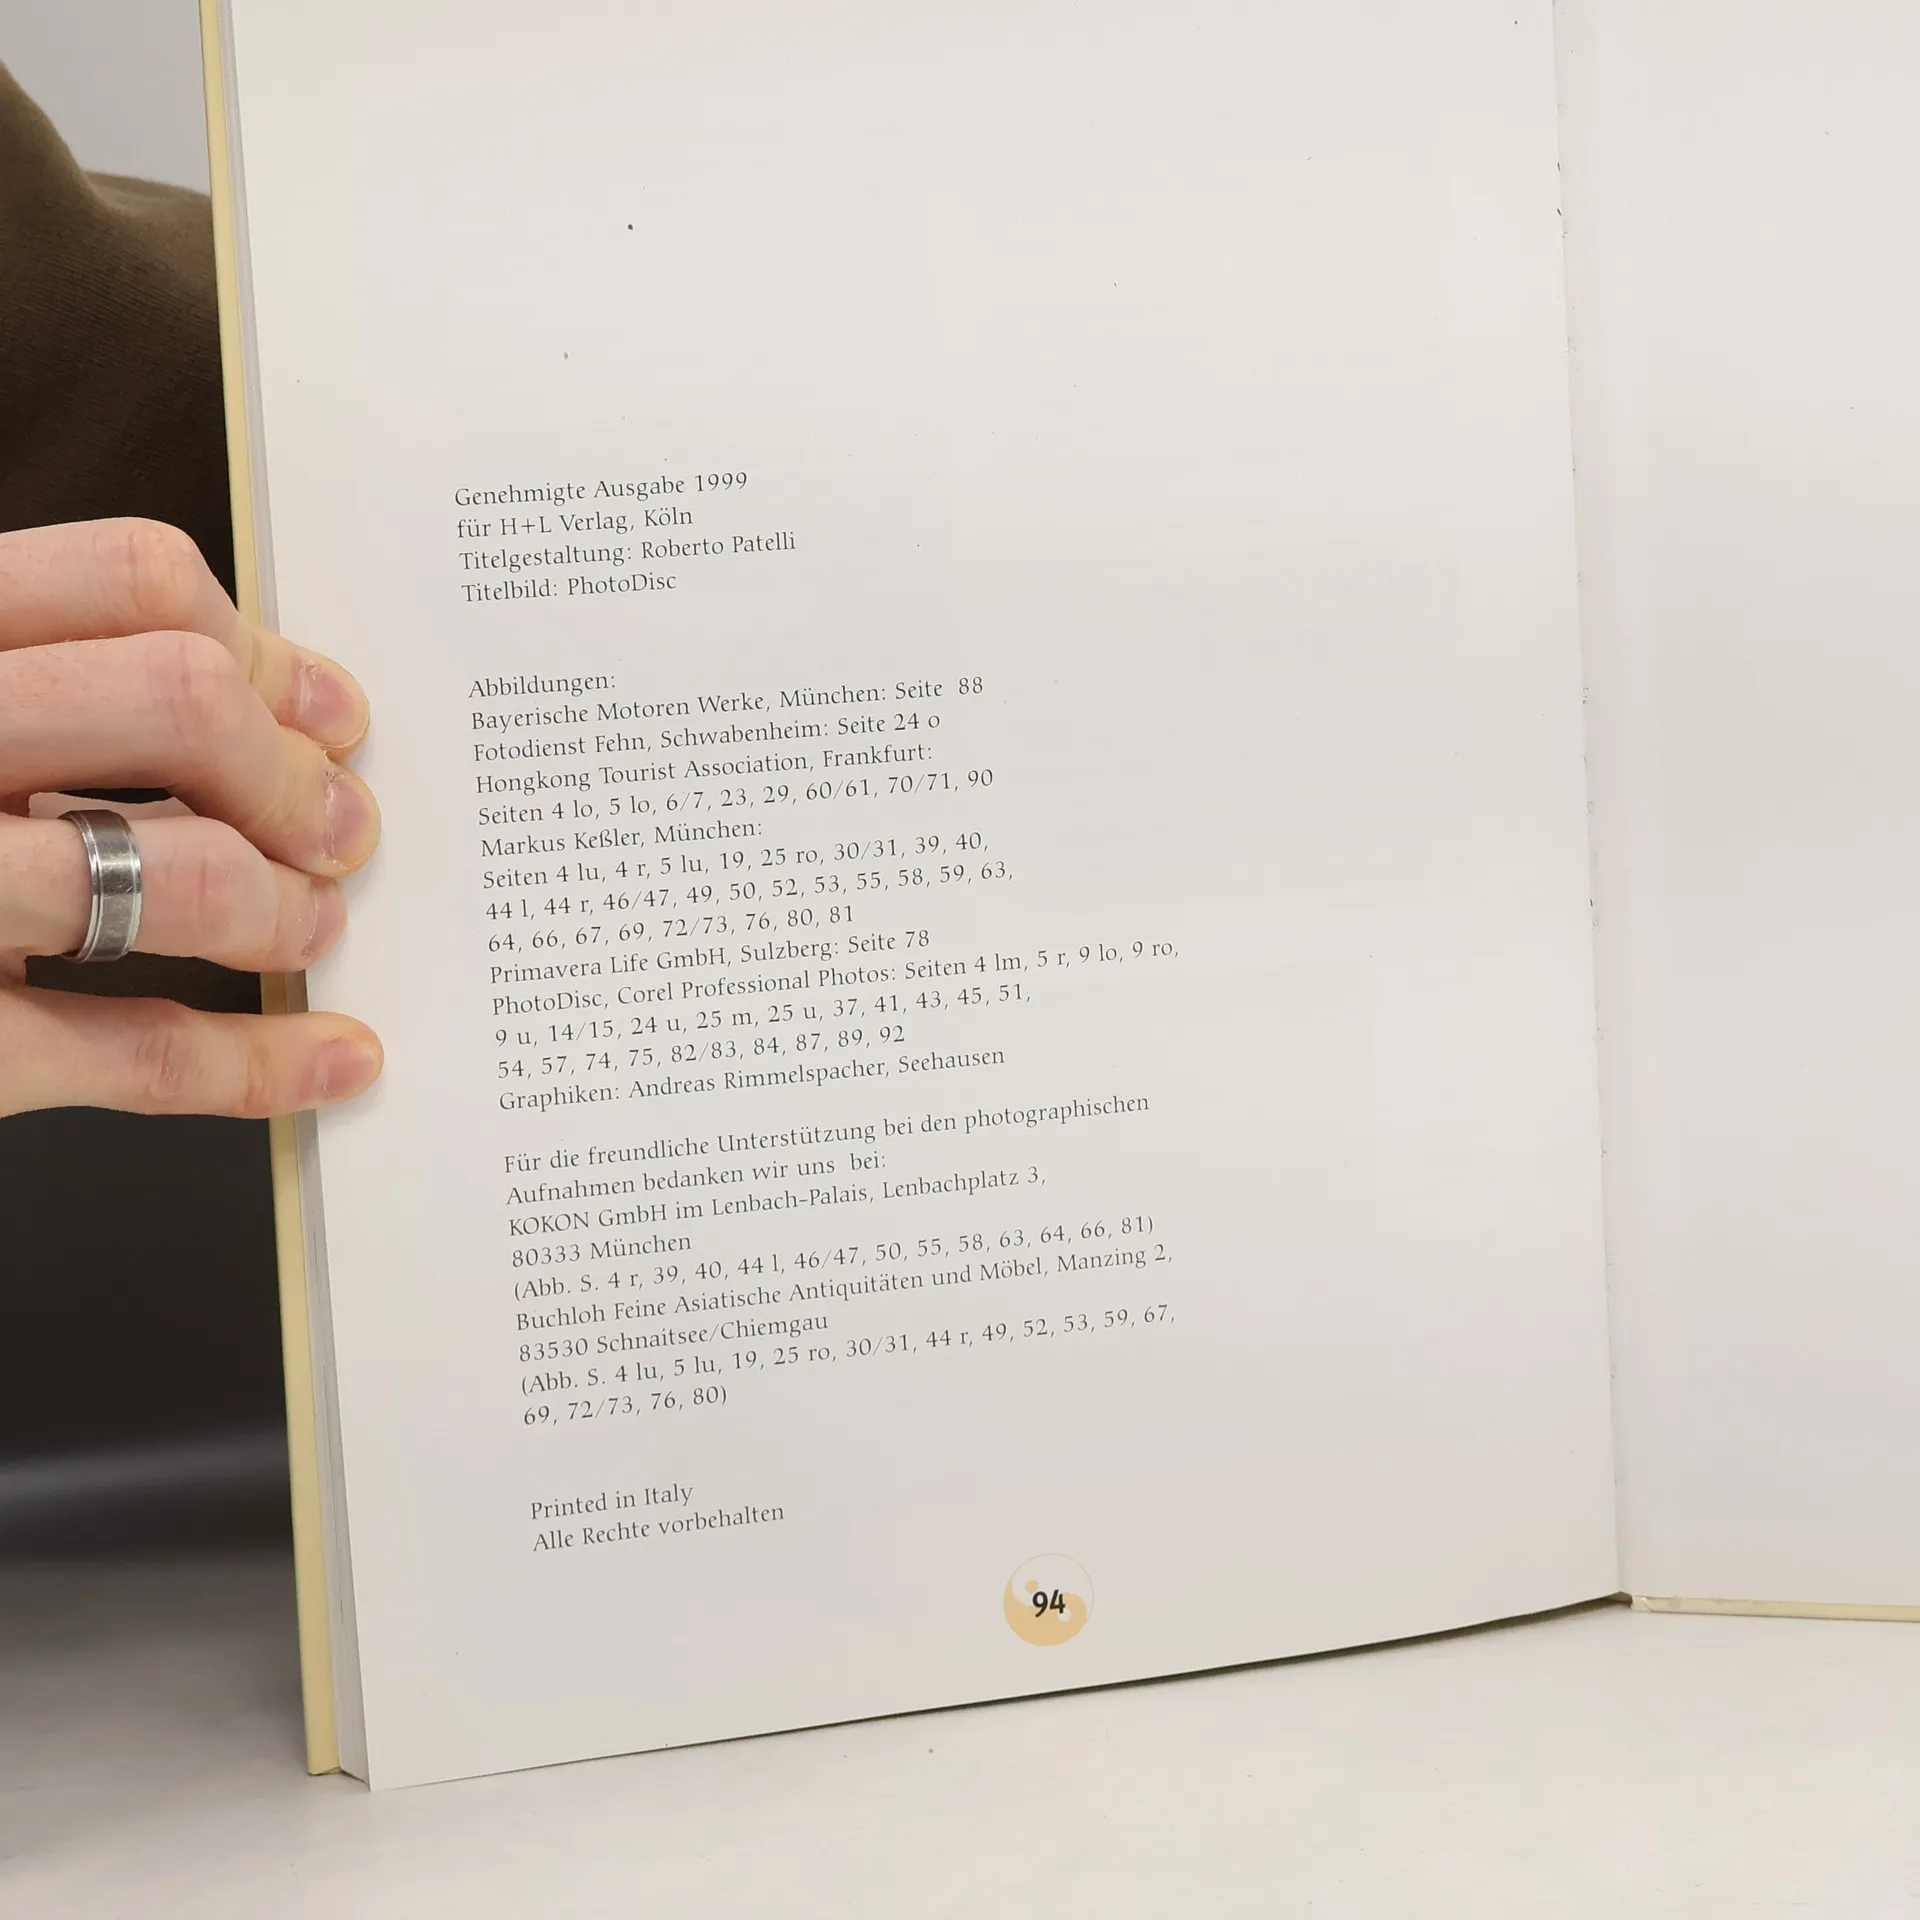 Genehmigte Ausgabe 1999
für H+L Verlag, Köln
Titelgestaltung: Roberto Patelli
Titelbild: PhotoDisc
Abbildungen:
Bayerische Motoren Werke, München: Seite 88
Fotodienst Fehn, Schwabenheim: Seite 24 o
Hongkong Tourist Association, Frankfurt:
Seiten 4 lo, 5 lo, 6/7, 23, 29, 60/61, 70/71, 90
Markus Keßler, München:
Seiten 4 lu, 4 r, 5 lu, 19, 25 ro, 30/31, 39, 40,
44 l, 44 r, 46/47, 49, 50, 52, 53, 55, 58, 59, 63,
64, 66, 67, 69, 72/73, 76, 80, 81
Primavera Life GmbH, Sulzberg: Seite 78
PhotoDisc, Corel Professional Photos: Seiten 4 lm, 5 r, 9 lo, 9 ro,
9 u, 14/15, 24 u, 25 m, 25 u, 37, 41, 43, 45, 51,
54, 57, 74, 75, 82/83, 84, 87, 89, 92
Graphiken: Andreas Rimmelspacher, Seehausen
Für die freundliche Unterstützung bei den photographischen
Aufnahmen bedanken wir uns bei:
KOKON GmbH im Lenbach-Palais, Lenbachplatz 3,
80333 München
(Abb. S. 4 r, 39, 40, 44 l, 46/47, 50, 55, 58, 63, 64, 66, 81)
Buchloh Feine Asiatische Antiquitäten und Möbel, Manzing 2,
83530 Schnaitsee/Chiemgau
(Abb. S. 4 lu, 5 lu, 19, 25 ro, 30/31, 44 r, 49, 52, 53, 59, 67,
69, 72/73, 76, 80)
Printed in Italy
Alle Rechte vorbehalten
94